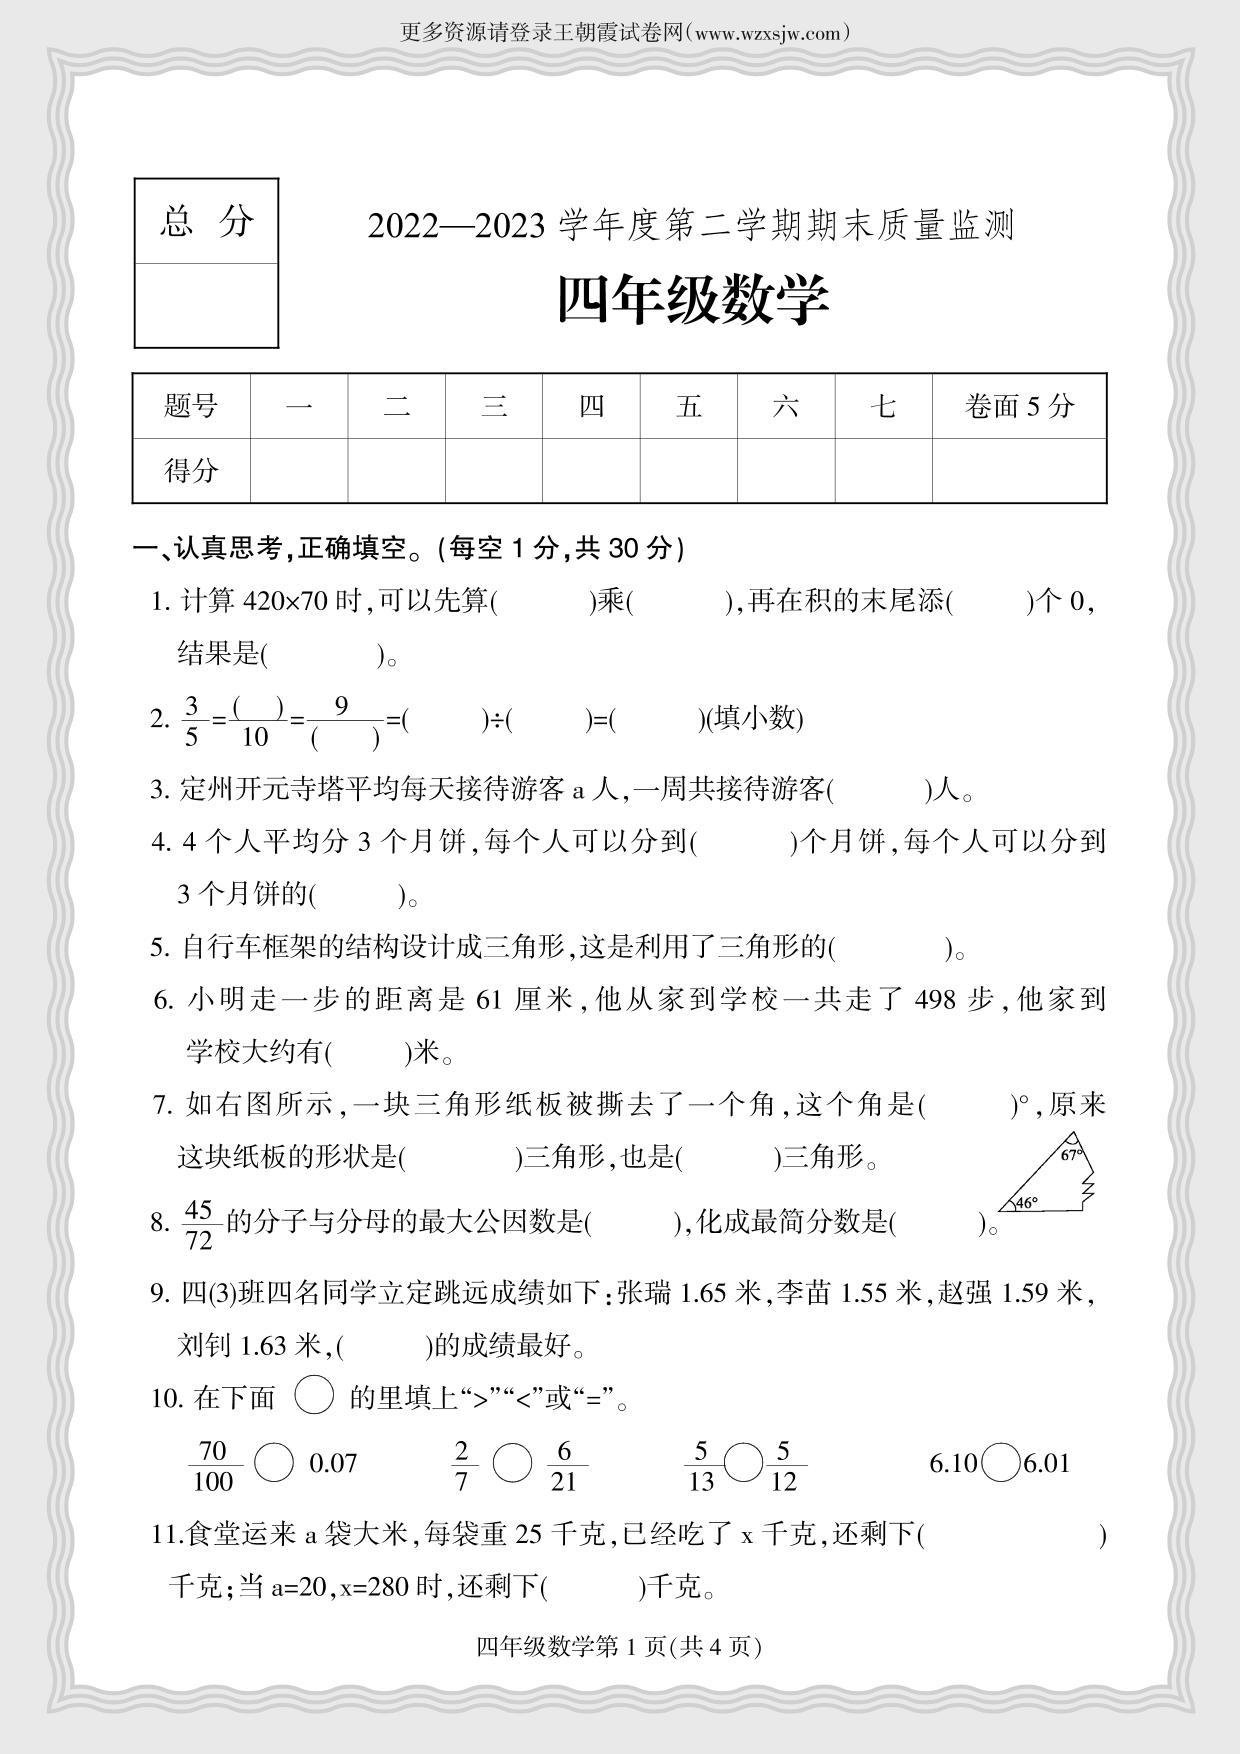 更多资源请登录王朝霞试卷网(www.wzxsjw.com)
总 分
2022—2023 学年度第二学期期末质量监测
四年级数学
题号 一 二 三 四 五 六 七 卷面 5 分
得分
一、认真思考,正确填空。(每空 1 分,共 30 分)
1. 计算 420×70 时,可以先算(   )乘(   ),再在积的末尾添(   )个 0,
结果是(   )。
2. 3/5=(   )/10=9/(   )=(   )÷(   )=(   )(填小数)
3. 定州开元寺塔平均每天接待游客 a 人,一周共接待游客(   )人。
4. 4 个人平均分 3 个月饼,每个人可以分到(   )个月饼,每个人可以分到
3 个月饼的(   )。
5. 自行车框架的结构设计成三角形,这是利用了三角形的(   )。
6. 小明走一步的距离是 61 厘米,他从家到学校一共走了 498 步,他家到
学校大约有(   )米。
7. 如右图所示,一块三角形纸板被撕去了一个角,这个角是(   )°,原来
这块纸板的形状是(   )三角形,也是(   )三角形。
67°
46°
8. 45/72 的分子与分母的最大公因数是(   ),化成最简分数是(   )。
9. 四(3)班四名同学立定跳远成绩如下:张瑞 1.65 米,李苗 1.55 米,赵强 1.59 米,
刘钊 1.63 米,(   )的成绩最好。
10. 在下面 ○ 的里填上“>”“<”或“=”。
70/100 ○ 0.07 2/7 ○ 6/21 5/13 ○ 5/12 6.10 ○ 6.01
11.食堂运来 a 袋大米,每袋重 25 千克,已经吃了 x 千克,还剩下(   )
千克;当 a=20,x=280 时,还剩下(   )千克。
四年级数学第 1 页(共 4 页)